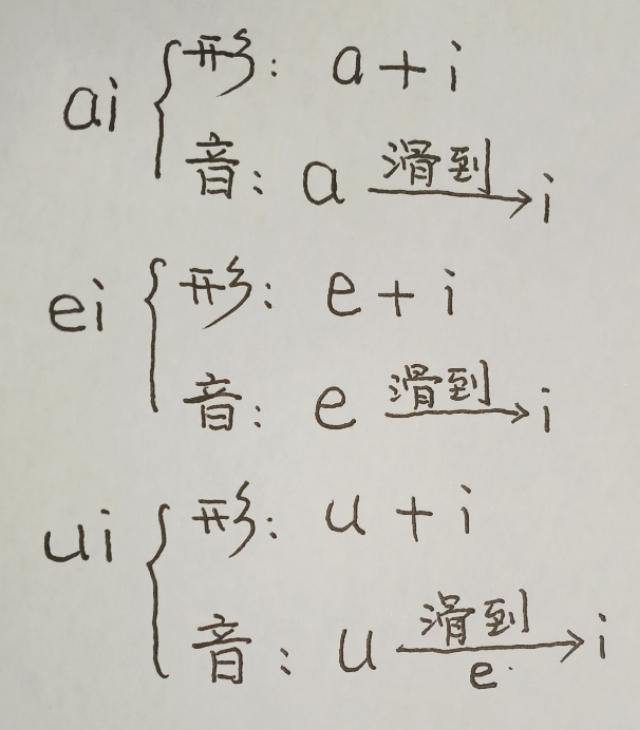 ai { 形: a + i
音: a 滑到→ i
ei { 形: e + i
音: e 滑到→ i
ui { 形: u + i
音: u 滑到→ i
e